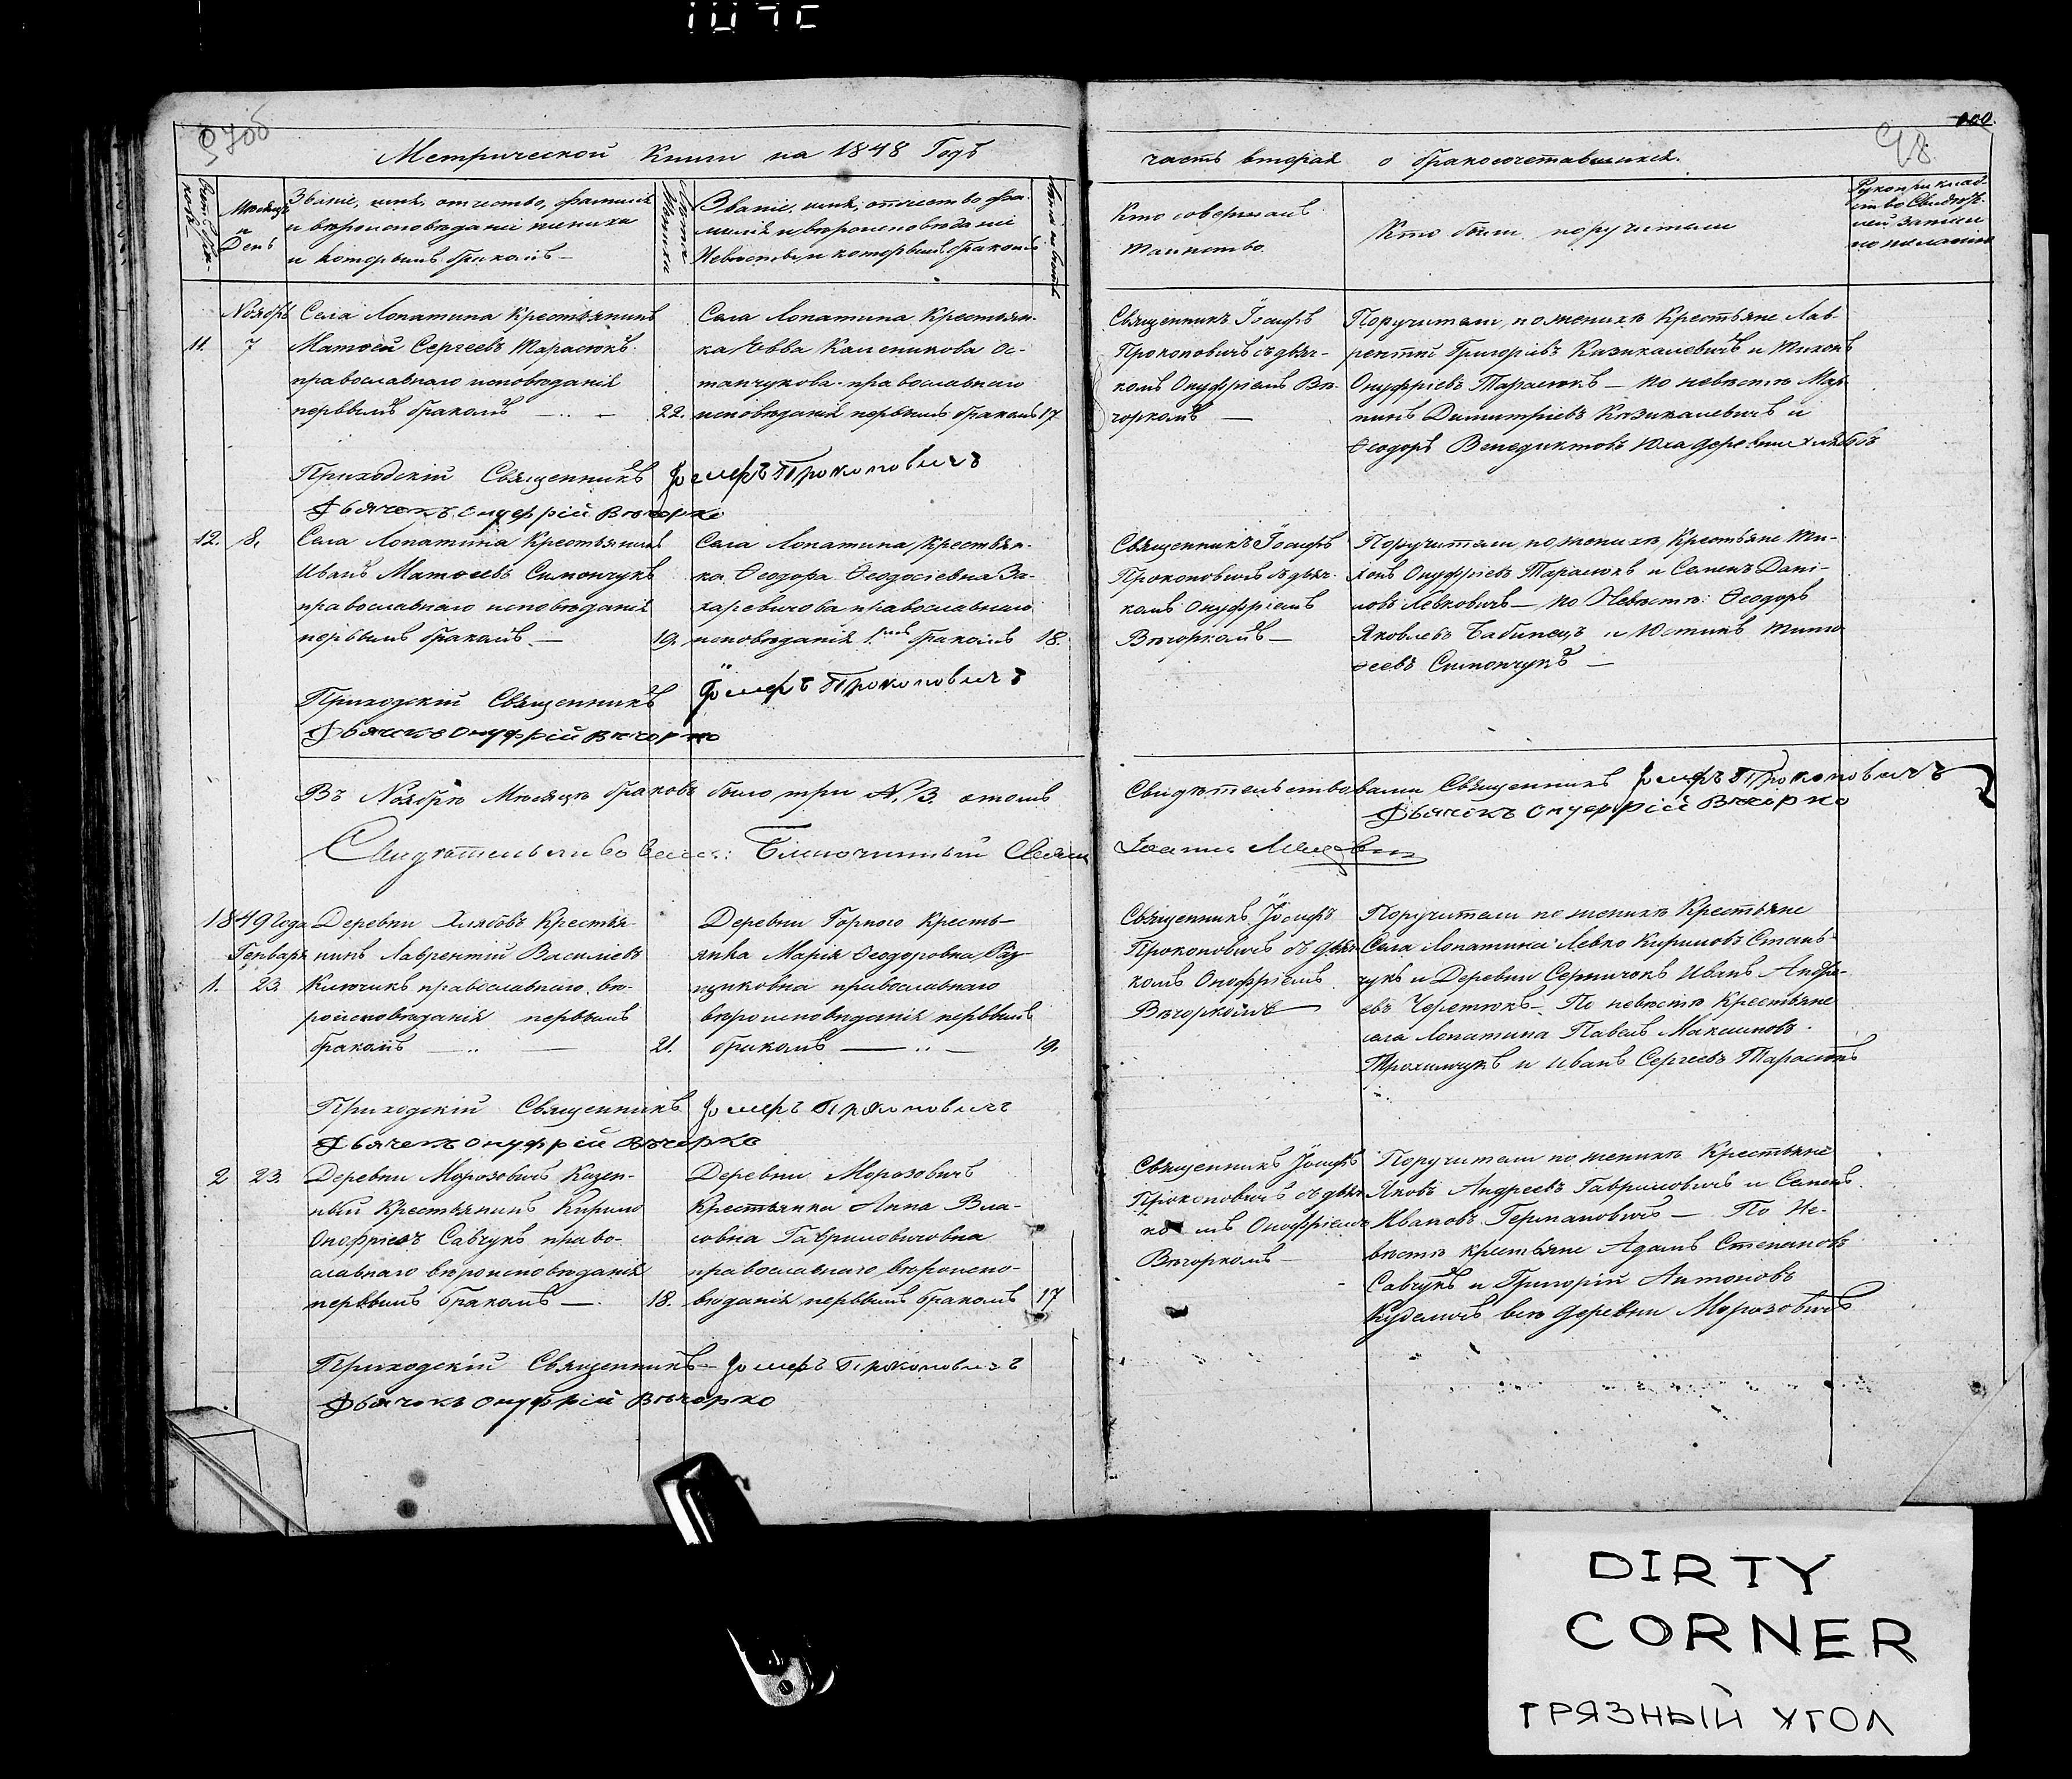 97об
100.
98
Метрической Книги на 1848 Годъ
часть вторая о бракосочетавшихся.
Мѣсяцъ и День
Званіе, имя, отчество, фамилія
и вѣроисповѣданіе жениха
и которымъ бракомъ —
Званіе, имя, отчество фа-
милія и вѣроисповѣданіе
Невѣсты, и которымъ бракомъ
Кто совершалъ
таинство.
Кто были поручители
Ноябрь
11. 7
Села Лопатина Крестьянинъ
Матѳей Сергеевъ Тарасюкъ
православнаго исповѣданія
первымъ бракомъ — 22.
Села Лопатина Крестьян-
ка Евва Каленикова Ос-
тапчукова православнаго
исповѣданія первымъ бракомъ 17
Священникъ Іосифъ
Прокоповичъ съ дьяч-
комъ Онуфріемъ Вѣ-
чоркомъ —
Поручители, по женихѣ Крестьяне Лав-
рентій Григоріевъ Казикалевичъ и Тихонъ
Онуфріевъ Тарасюкъ — по невѣстѣ Мар-
тинъ Димитріевъ Казикалевичъ и
Ѳеодоръ Венедиктовъ Юха деревни Хлябовъ
Приходскій Священникъ Іосифъ Прокоповичъ
Дьячокъ Онуфрій Вѣчорко
12. 8.
Села Лопатина Крестьянинъ
Иванъ Матѳеевъ Симончукъ
православнаго исповѣданія
первымъ бракомъ — 19.
Села Лопатина Крестьян-
ка Ѳеодора Ѳеодосіевна За-
харевичова православнаго
исповѣданія 1.мъ бракомъ 18.
Священникъ Іосифъ
Прокоповичъ съ дьяч-
комъ Онуфріемъ
Вѣчоркомъ —
Поручители, по женихѣ, Крестьяне Ти-
хонъ Онуфріевъ Тарасюкъ и Семенъ Дані-
ловъ Левковичъ — по Невѣстѣ: Ѳеодоръ
Яковлевъ Бабинецъ и Юстинъ Тимо-
ѳеевъ Симончукъ —
Приходскій Священникъ Іосифъ Прокоповичъ
Дьячокъ Онуфрій Вѣчорко
Въ Ноябрѣ Мѣсяцѣ браковъ было три N. 3. отомъ
Свидѣтельствовали Священникъ Іосифъ Прокоповичъ
Дьячокъ Онуфрій Вѣчорко
Свидѣтельствовалъ: Благочинный Священ
Іоаннъ
1849 Года
Генваря
1. 23.
Деревни Хлябовъ Крестья-
нинъ Лаврентій Василіевъ
Ключикъ православнаго вѣ-
роисповѣданія первымъ
бракомъ — 21.
Деревни Горного Кресть-
янка Марія Ѳеодоровна Раз-
цуковна православнаго
вѣроисповѣданія первымъ
бракомъ — 19.
Священникъ Іосифъ
Прокоповичъ съ дьяч-
комъ Онофріемъ
Вѣчоркомъ
Поручители по женихѣ Крестьяне
Села Лопатина Левко Кириловъ Стань-
чукъ и Деревни Серничокъ Иванъ Андре-
евъ Черетюкъ — По невѣстѣ Крестьяне
села Лопатина Павелъ Максимовъ
Трохимчукъ и Иванъ Сергеевъ Тарасюкъ
Приходскій Священникъ Іосифъ Прокоповичъ
Дьячекъ Онуфрій Вѣчорко
2 23.
Деревни Морозовичъ Казен-
ный Крестьянинъ Кирило
ОноФріевъ Савчукъ право-
славнаго вѣроисповѣданія
первымъ бракомъ — 18.
Деревни Морозовичъ
Крестьянка Анна Вла-
совна Гавриловичовна
православнаго вѣроиспо-
вѣданія первымъ бракомъ 17
Священникъ Іосифъ
Прокоповичъ съ дьяч-
комъ Оноѳріемъ
Вѣчоркомъ —
Поручители по женихѣ Крестьяне
Яковъ Андреевъ Гавриловичъ и Семенъ
Ивановъ Германовичъ — По Не-
вѣстѣ крестьяне Адамъ Степановъ
Савчукъ и Григорій Антоновъ
Куделичъ всѣ деревни Морозовичъ
Приходскій Священникъ — Іосифъ Прокоповичъ
Дьячокъ Онуфрій Вѣчорко
DIRTY
CORNER
ГРЯЗНЫЙ УГОЛ